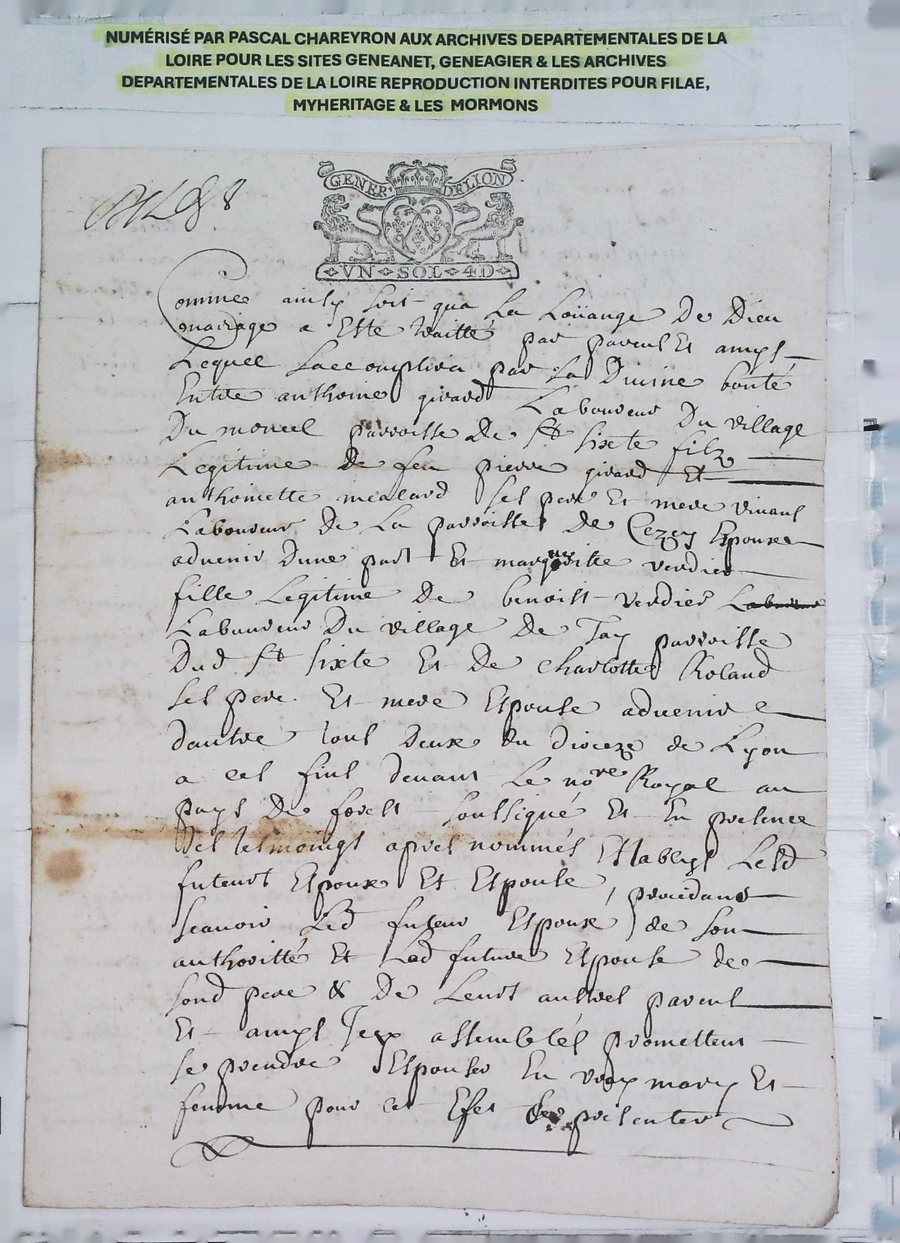 NUMÉRISÉ PAR PASCAL CHAREYRON AUX ARCHIVES DEPARTEMENTALES DE LA
LOIRE POUR LES SITES GENEANET, GENEAGIER & LES ARCHIVES
DEPARTEMENTALES DE LA LOIRE REPRODUCTION INTERDITES POUR FILAE,
MYHERITAGE & LES MORMONS
GENER. DELION
VN SOL 4D
Comme ainsy soit qua La Loüange De Dieu
mariage a Esté traitté par parens Et amys
Lequel saccomplira par La Divine bonté
Entre anthoine girard Laboureur Du village
Du moncel parroisse De St sixte filz
Legitime De feu pierre girard Et
anthoinette mealard ses pere Et mere vivans
Laboureurs De La parroisse De Cezey Espoux
advenir Dune part Et marguerite verdier
fille Legitime De benoist verdier
Laboureur Du village De Jay parroisse
Dud St sixte Et De charlotte Roland
ses pere Et mere Espouse advenire
dautre tous Deux du Dioceze de Lyon
a ces fins devant Le nore Royal au
pays De forest soussigné Et En presence
Des tesmoings apres nommés Establys Lesd
futeurs Espoux Et Espouse, procedans
scavoir Led futeur Espoux de son
authoritté Et Lad future Espouse de
sond pere & De Leurs autres parens
Et amys Jcy assemblés promettent
se prendre Espouser En vray mary Et
femme pour cet Efet se presenter